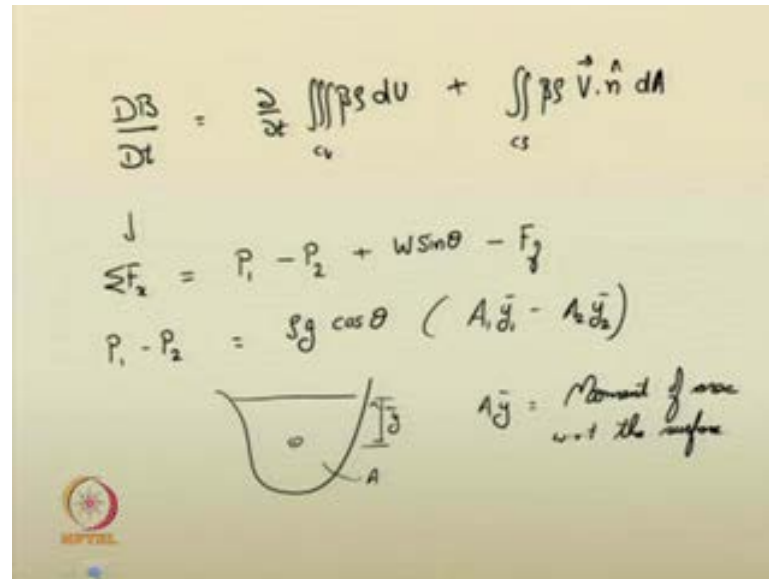 DB/Dt = ∂/∂t ∭ βρ dV + ∬ βρ V⃗.n̂ dA
CV CS
↓
ΣFx = P₁ - P₂ + W Sinθ - Ff
P₁ - P₂ = ρg cosθ ( A₁ȳ₁ - A₂ȳ₂ )
ȳ
A
Aȳ = Moment of area
w.r.t the surface
NPTEL